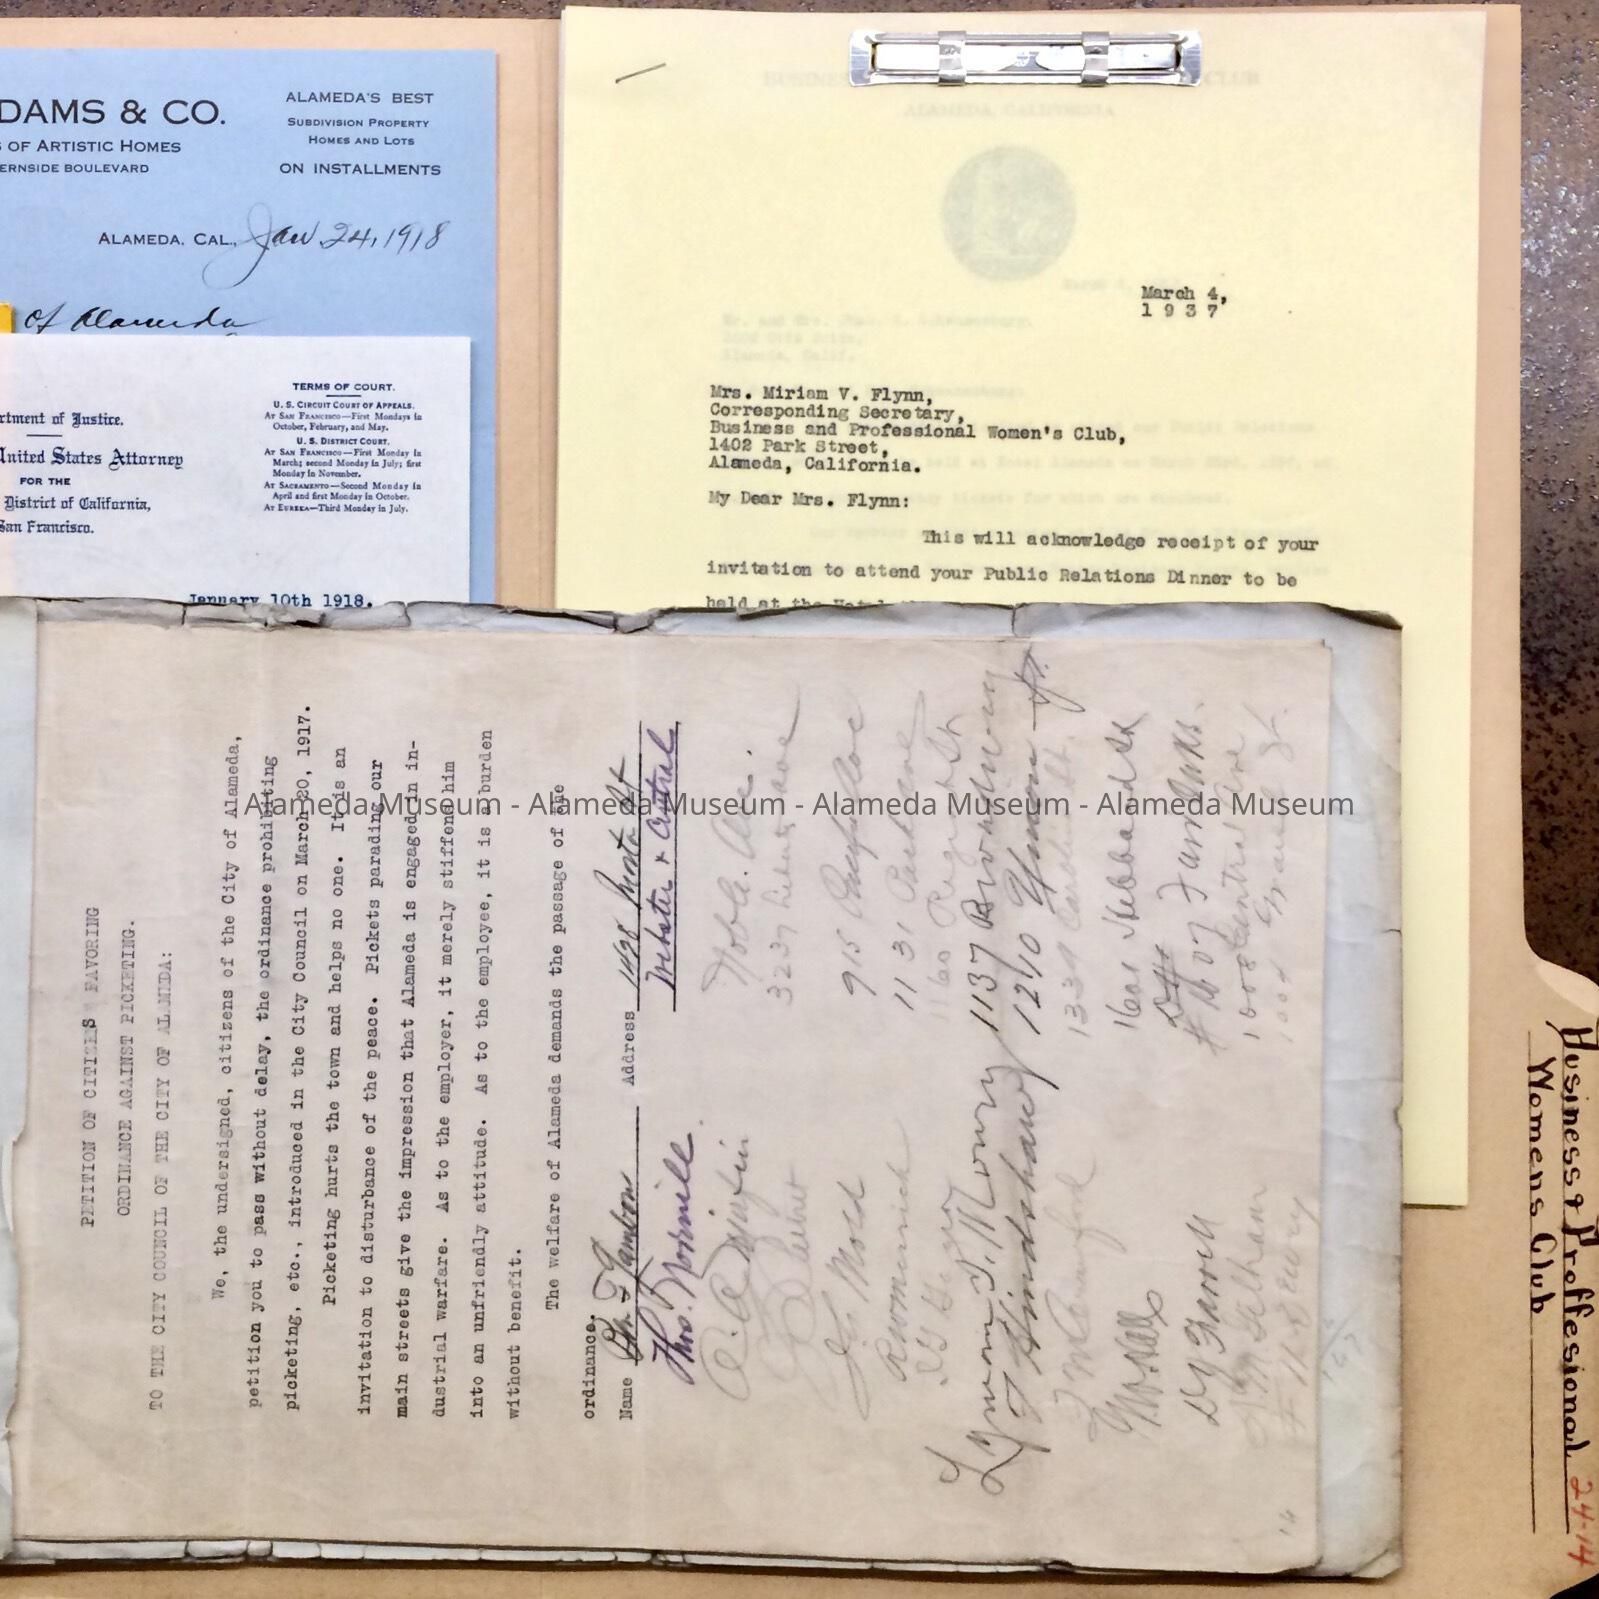 DAMS & CO.
S OF ARTISTIC HOMES
ERNSIDE BOULEVARD
ALAMEDA'S BEST
SUBDIVISION PROPERTY
HOMES AND LOTS
ON INSTALLMENTS
ALAMEDA, CAL., Jan 24, 1918
of Alameda
rtment of Justice.
United States Attorney
FOR THE
District of California,
San Francisco.
TERMS OF COURT.
U. S. CIRCUIT COURT OF APPEALS.
AT SAN FRANCISCO—First Mondays in
October, February, and May.
U. S. DISTRICT COURT.
AT SAN FRANCISCO—First Monday in
March; second Monday in July; first
Monday in November.
AT SACRAMENTO—Second Monday in
April and first Monday in October.
AT EUREKA—Third Monday in July.
January 10th 1918.
ALAMEDA, CALIFORNIA
March 4,
1937
Mrs. Miriam V. Flynn,
Corresponding Secretary,
Business and Professional Women's Club,
1402 Park Street,
Alameda, California.
My Dear Mrs. Flynn:
This will acknowledge receipt of your
invitation to attend your Public Relations Dinner to be
held at the Hotel
PETITION OF CITIZENS FAVORING
ORDINANCE AGAINST PICKETING.
TO THE CITY COUNCIL OF THE CITY OF ALMIDA:
We, the undersigned, citizens of the City of Alameda,
petition you to pass without delay, the ordinance prohibiting
picketing, etc., introduced in the City Council on March 20, 1917.
Picketing hurts the town and helps no one. It is an
invitation to disturbance of the peace. Pickets parading our
main streets give the impression that Alameda is engaged in in-
dustrial warfare. As to the employer, it merely stiffens him
into an unfriendly attitude. As to the employee, it is a burden
without benefit.
The welfare of Alameda demands the passage of the
ordinance.
Name Address 1498
Thos. Webster & Central
Noble Ave.
3237 Liberty ave
915
1131
1160 Regent St
1137 Broadway
1240
1339
1601 Hebbard St
#1607 Fair Oaks.
1008 Central Ave
Grand St.
Business & Proffesional
Womens Club
24-14
Alameda Museum - Alameda Museum - Alameda Museum - Alameda Museum